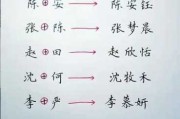 陈⊕安→陈安钰
张⊕陈→张梦晨
赵⊕田→赵欣恬
沈⊕何→沈牧禾
李⊕严→李慕妍